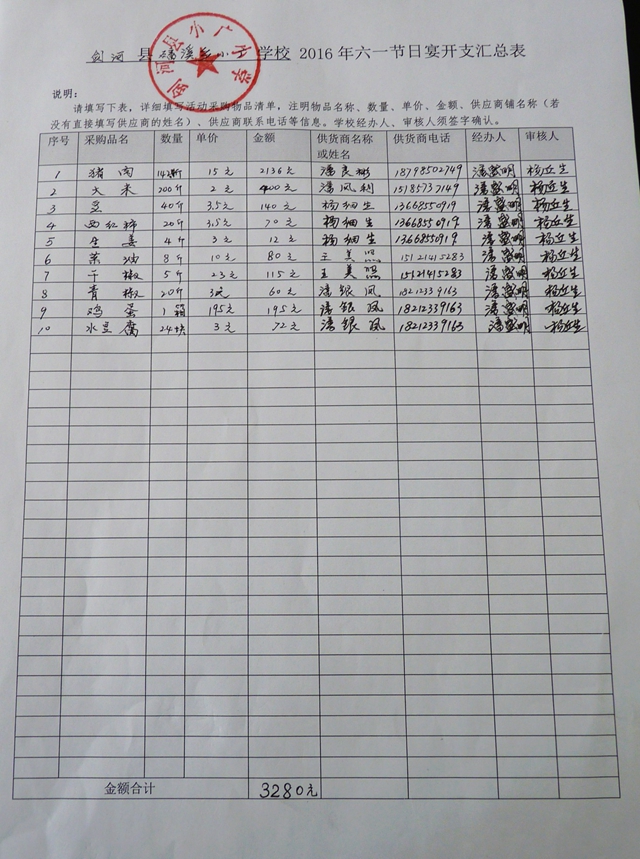 剑河县磻溪乡小广学校 2016 年六一节日宴开支汇总表
剑河县小广小学
说明：
请填写下表，详细填写活动采购物品清单，注明物品名称、数量、单价、金额、供应商铺名称（若
没有直接填写供应商的姓名）、供应商联系电话等信息。学校经办人、审核人须签字确认。
序号 采购品名 数量 单价 金额 供货商名称或姓名 供货商电话 经办人 审核人
1 猪肉 142斤 15元 2136元 潘良彬 18798502749
2 大米 200斤 2元 400元 潘凤利 15185737149
3 豆 40斤 3.5元 140元 杨细生 13668550919
4 西红柿 20斤 3.5元 70元 杨细生 13668550919
5 生姜 4斤 3元 12元 杨细生 13668550919
6 菜油 8斤 10元 80元 王美照 15121415283
7 干椒 5斤 23元 115元 王美照 15121415283
8 青椒 20斤 3元 60元 潘银凤 18212339163
9 鸡蛋 1箱 195元 195元 潘银凤 18212339163
10 水豆腐 24块 3元 72元 潘银凤 18212339163
金额合计 3280元